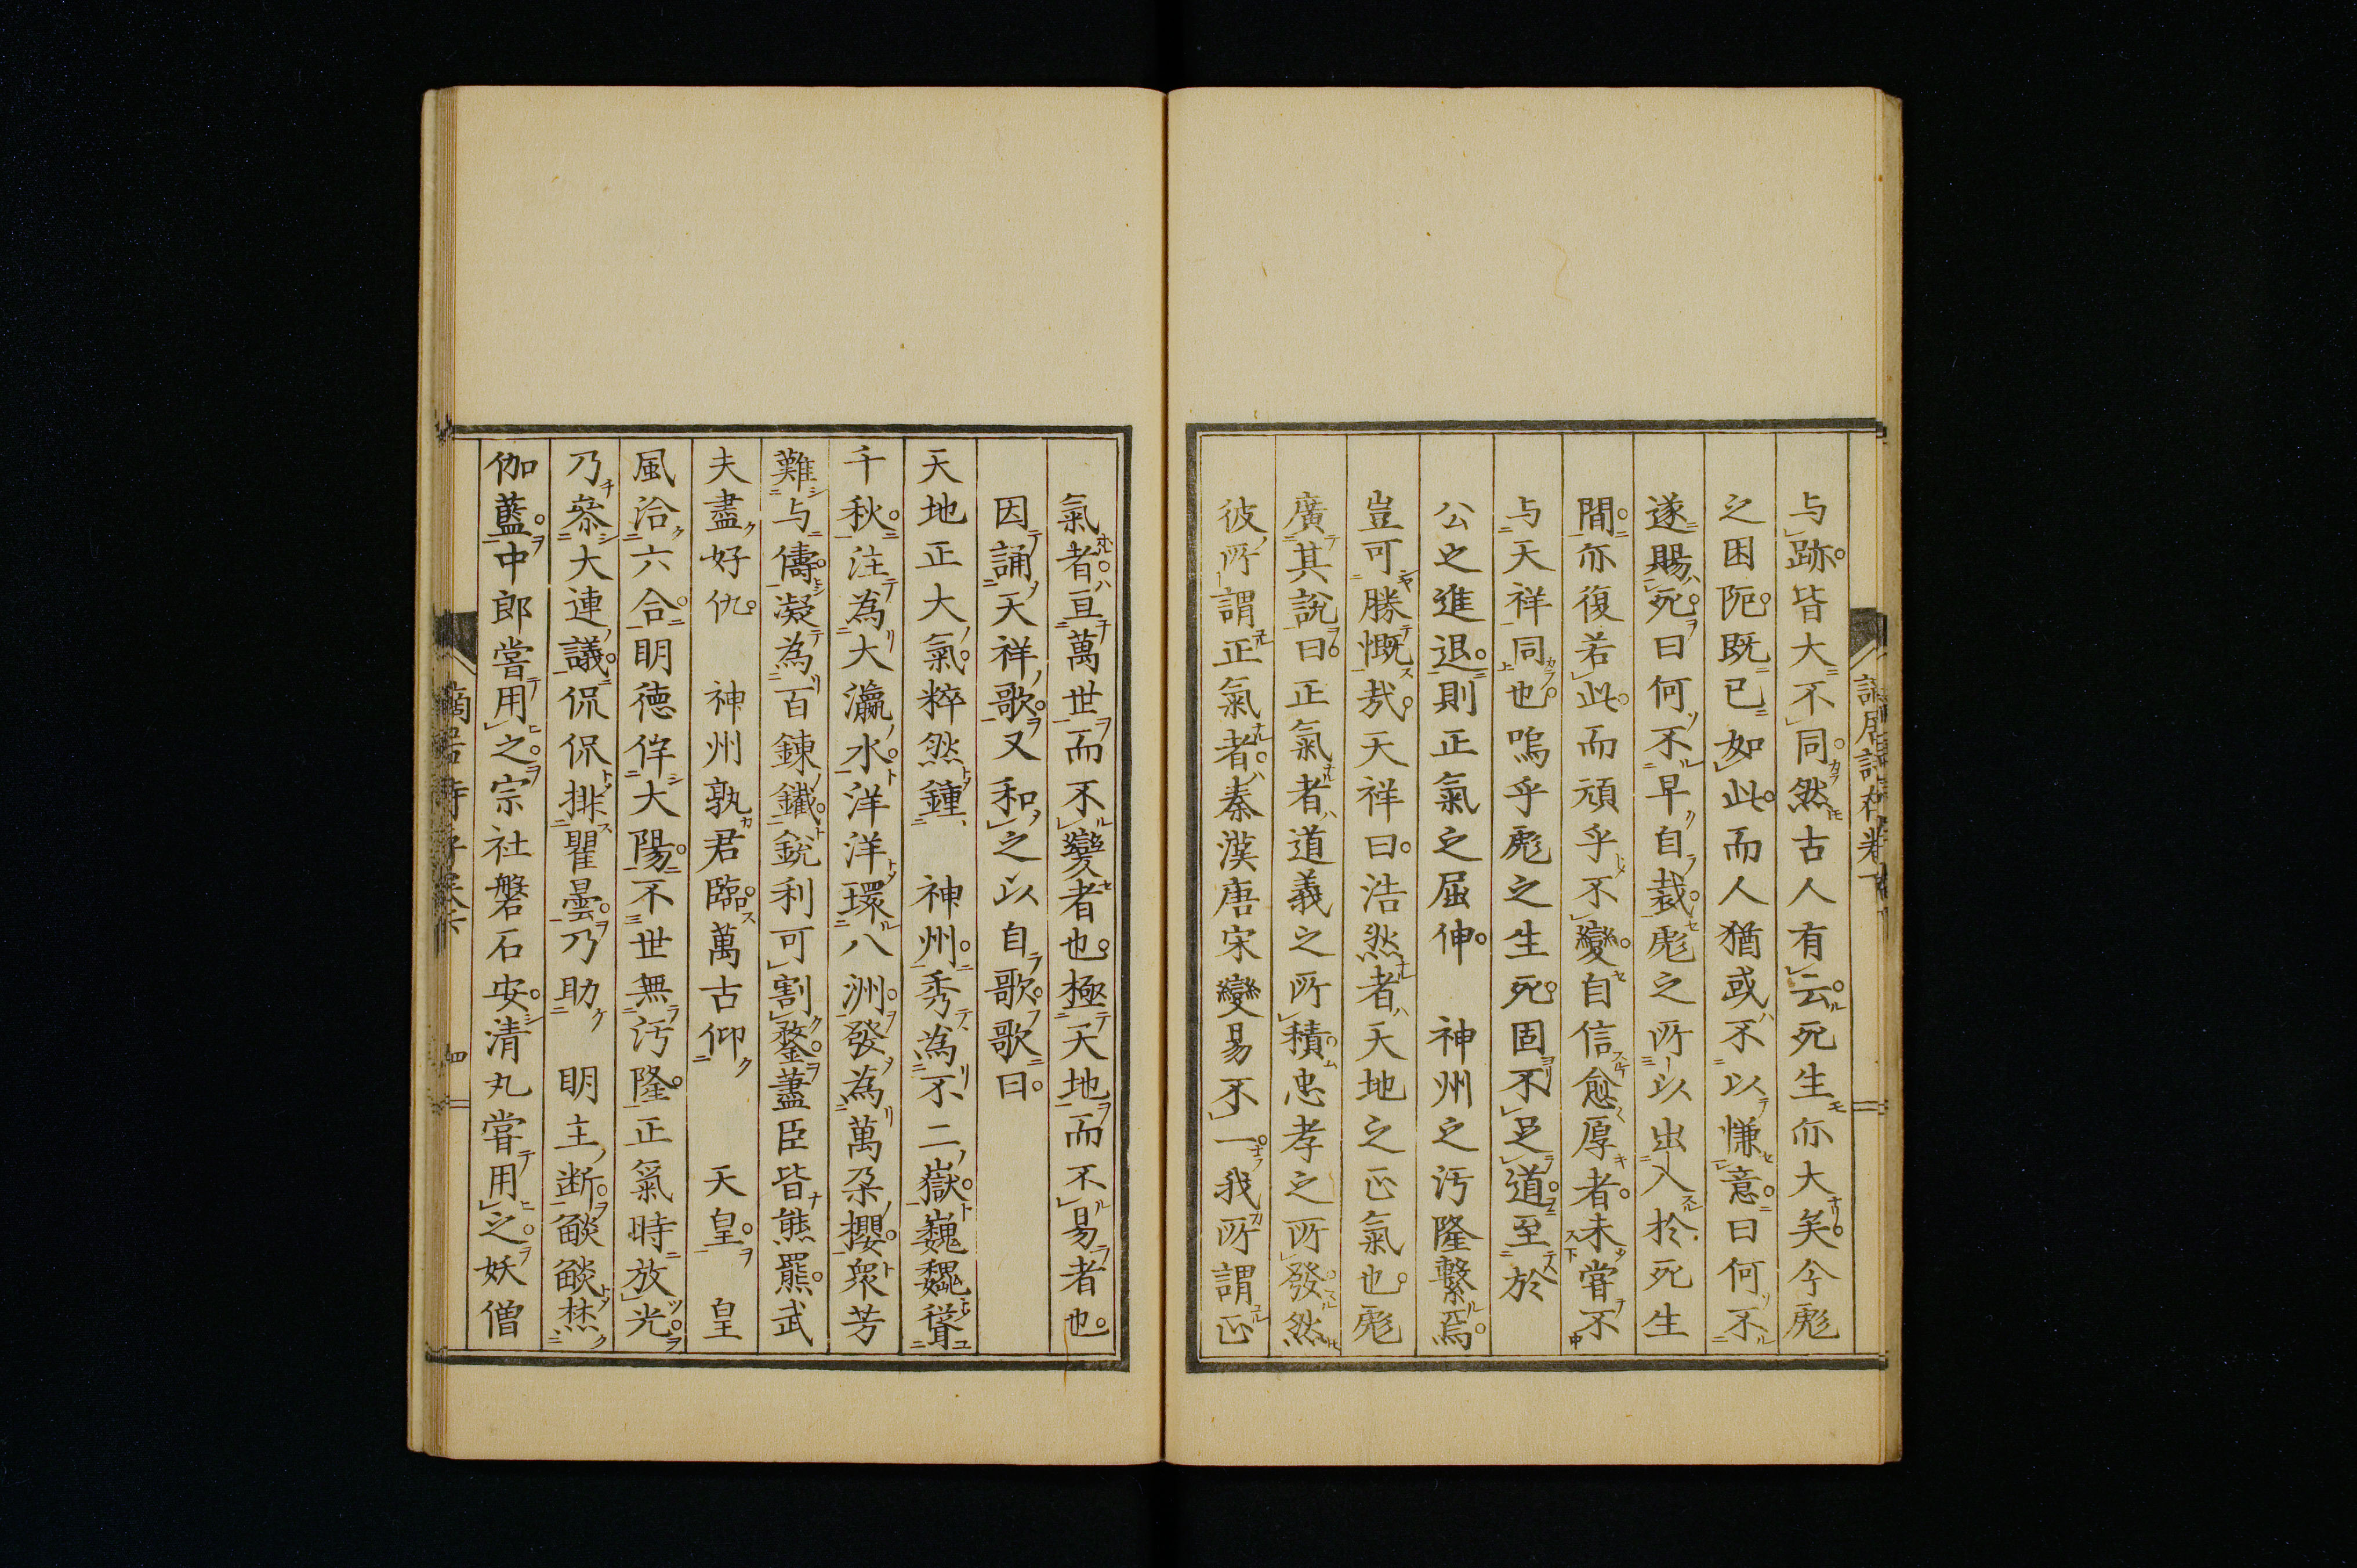 与跡皆大不同然古人有云死生亦大矣今彪
之困阨既已如此而人猶或不以慊意曰何不
遂賜死曰何不早自裁彪之所以出入於死生
間亦復若此而頑乎不變自信愈厚者未嘗不
与天祥同也嗚乎彪之生死固不足道至於
公之進退則正氣之屈伸　神州之汚隆繫焉
豈可勝慨哉天祥曰浩然者天地之正氣也彪
廣其說曰正氣者道義之所積忠孝之所發然
彼所謂正氣者秦漢唐宋變易不一我所謂正
氣者亘萬世而不變者也極天地而不易者也
因誦天祥歌又和之以自歌歌曰
天地正大氣粹然鍾　神州秀為不二嶽巍巍聳
千秋注為大瀛水洋洋環八洲發為萬朶櫻衆芳
難与儔凝為百鍊鐵銳利可割鍪藎臣皆熊羆武
夫盡好仇　神州孰君臨萬古仰　天皇　皇
風洽六合明德侔大陽不世無汚隆正氣時放光
乃參大連議侃侃排瞿曇乃助　明主断燄燄焚
伽藍中郎嘗用之宗社磐石安清丸嘗用之妖僧